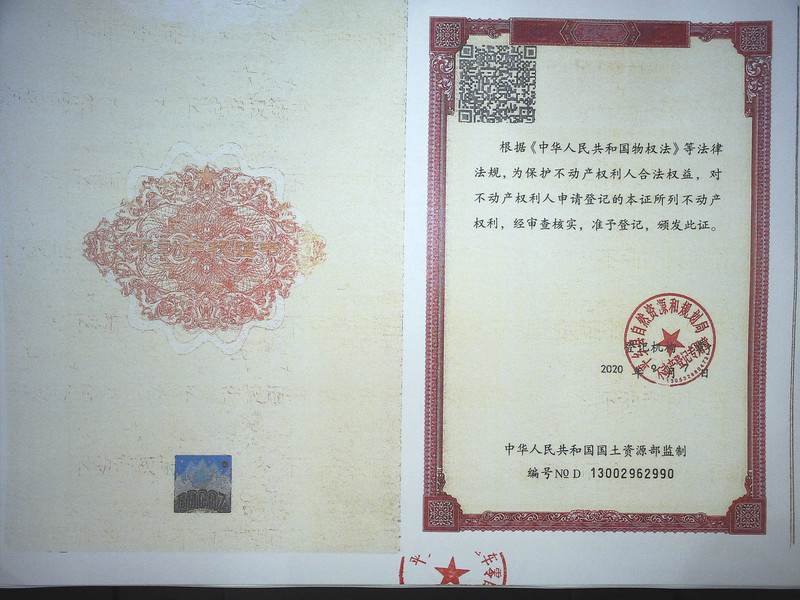 根据《中华人民共和国物权法》等法律
法规，为保护不动产权利人合法权益，对
不动产权利人申请登记的本证所列不动产
权利，经审查核实，准予登记，颁发此证。
自然资源和规划局
登记机构
不动产登记专用章
2020 年 9 月 7 日
中华人民共和国国土资源部监制
编号 № D 13002962990